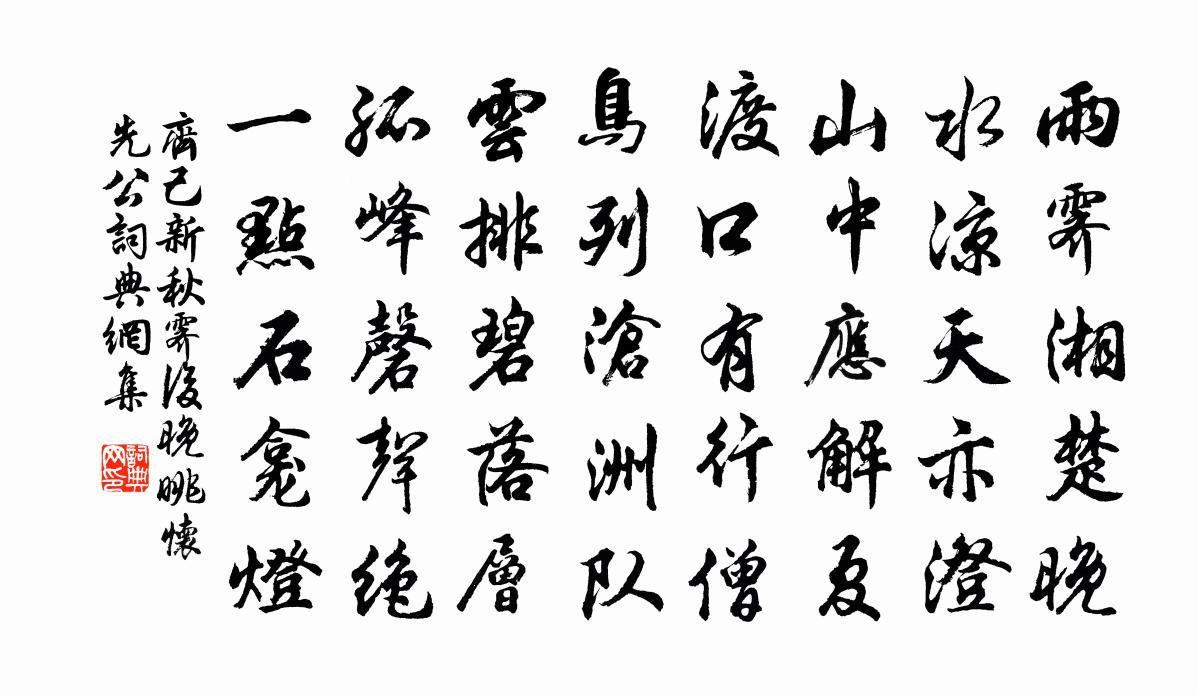 雨霽湘楚晚
水涼天亦澄
山中應解夏
渡口有行僧
鳥列滄洲队
雲排碧落層
孤峰磬聲绝
一點石龕燈
齊己新秋霽後晚眺懷
先公詞典網集
詞典
网印